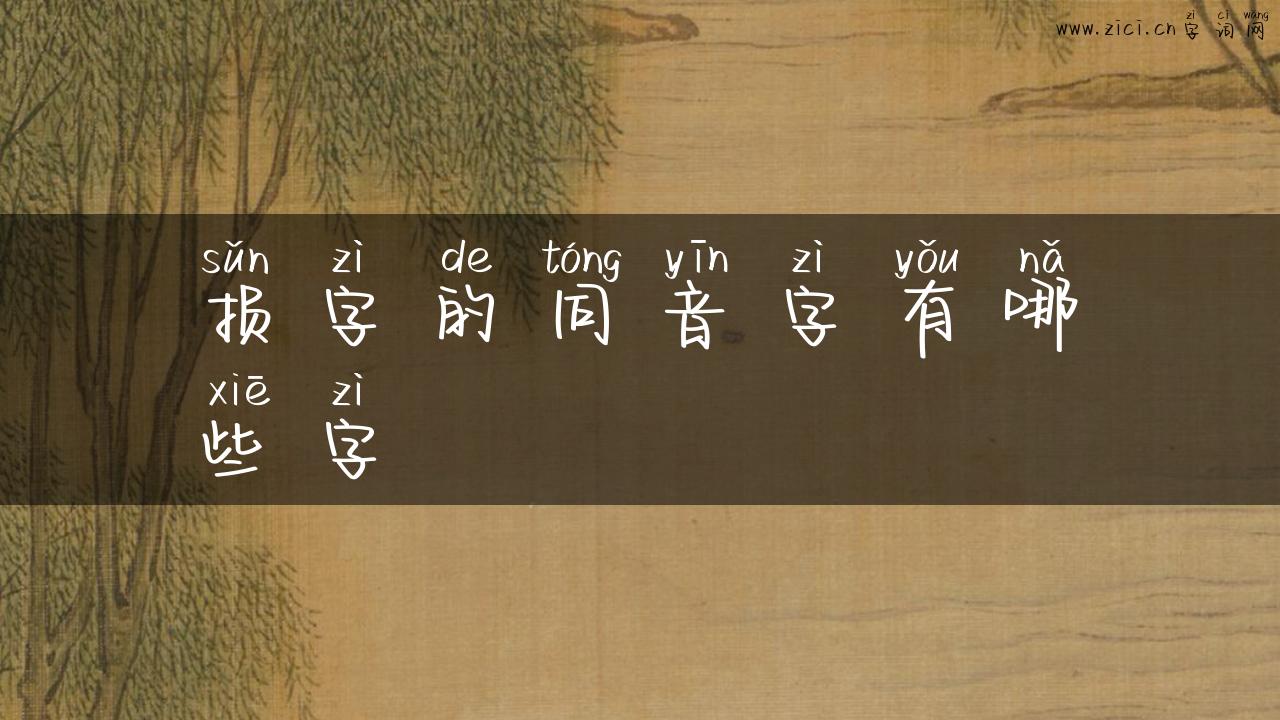 zì cí wǎng
www.zici.cn 字词网
sǔn zì de tóng yīn zì yǒu nǎ
损字的同音字有哪
xiē zì
些字